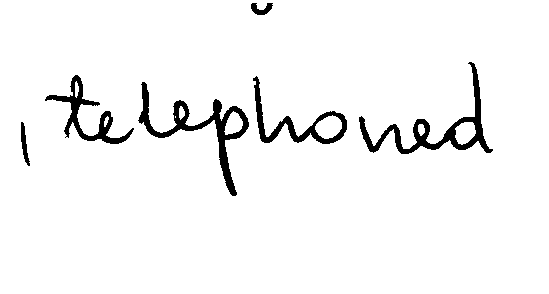 , telephoned